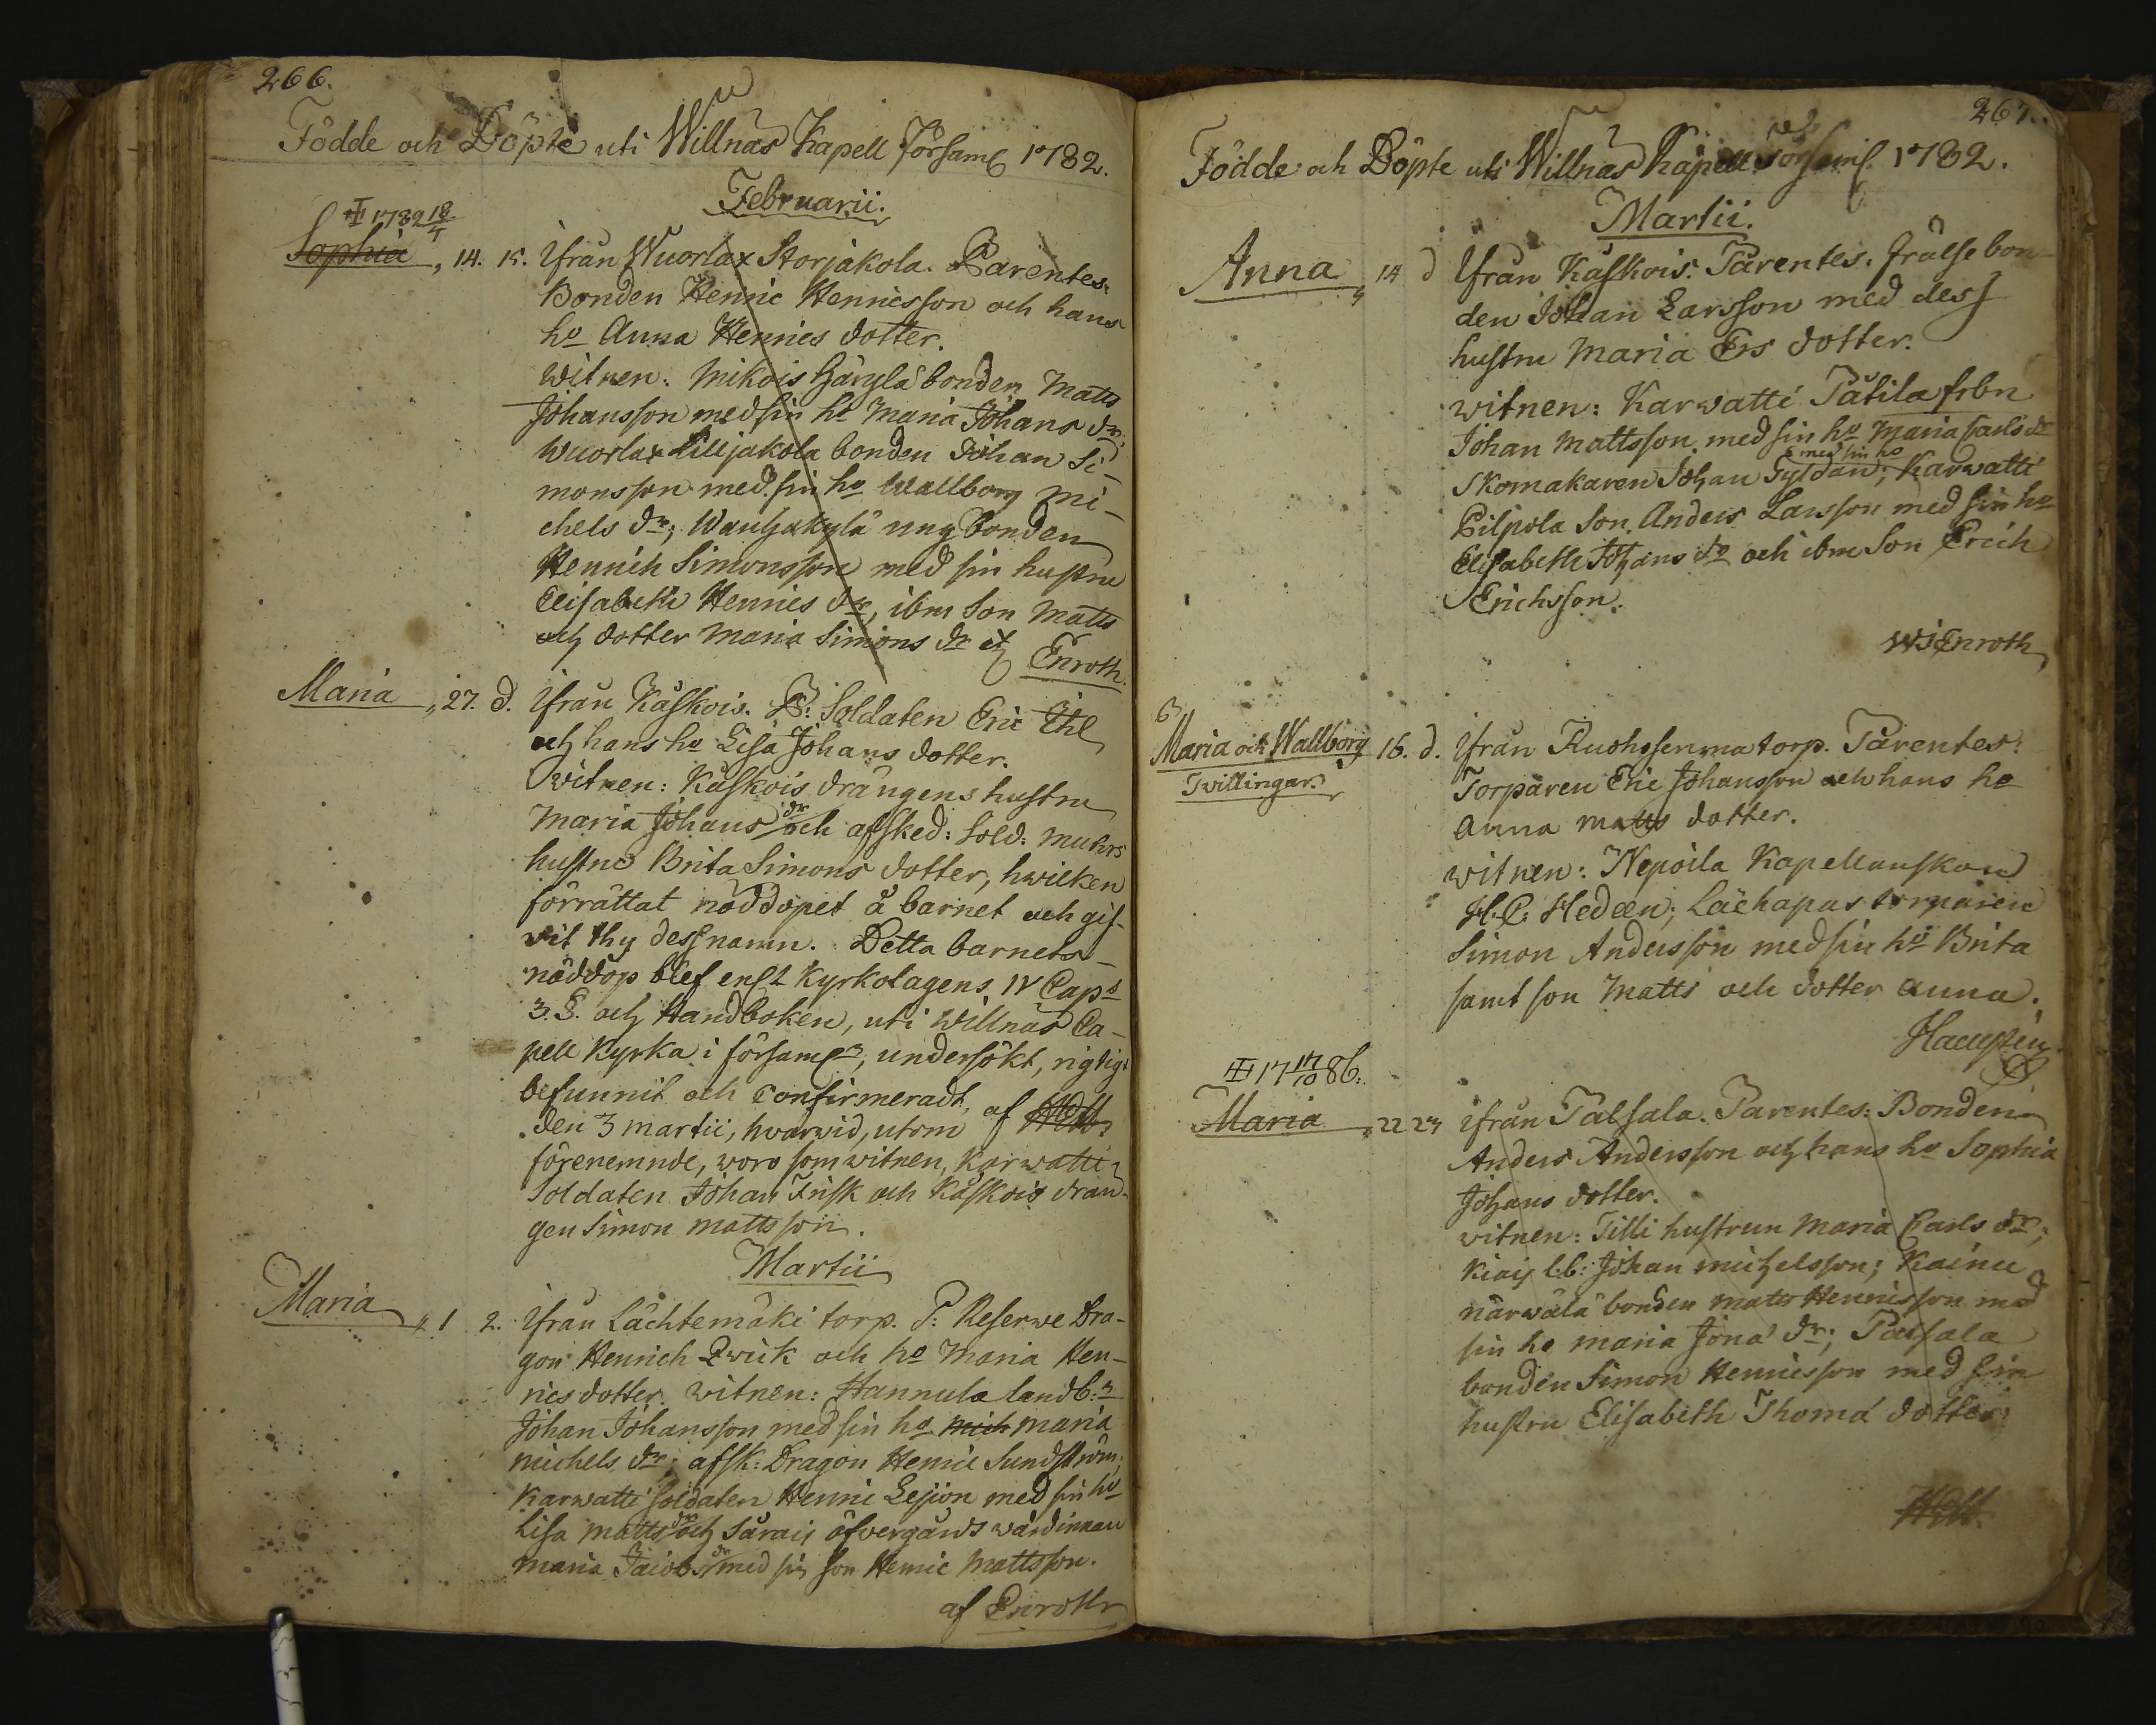 266.
Födde och Döpte uti Willnäs Kapell Församl 1782.
Februarii.
1782 18/4
Sophia 14. 15. Ifrån Wuorlax Storjakola. Parentes:
Bonden Henric Henricsson och hans
ho Anna Henrics dotter.
witnen: Mikois Häyylä bonden Matts
Johansson med sin ho Maria Johans dr.
Wuorlax Lilljakola bonden Johan Si-
monsson med sin ho Wallborg Mi-
chels dr; Wanhakylä ung bonden
Henrich Simonsson med sin hustru
Elisabeth Henrics dr, ibm Son Matts
och dotter Maria Simons dr af Enroth.
Maria 27. d. Ifrån Kaskois. P: Soldaten Eric Ekl
och hans ho Lisa Johans dotter.
witnen: Kaskois drängens hustru
Maria Johans dr och afsked: Sold: Muhrs
hustru Brita Simons dotter, hwilken
förrättat nöddopet å barnet och gif-
wit thy dess namn. Detta barnets
nöddop blef enl Kyrkolagens IV Caps
3. §. och Handboken, uti Willnäs Ca-
pell Kyrka i församl, undersökt, rigtigt
befunnit och confirmeradt,
den 3 martii, hvarwid, utom af
förenemnde, woro som witnen, Karwatti
Soldaten Johan Frisk och Kaskois drän-
gen Simon Mattsson.
Martii
Maria 1 2. Ifrån Lächtemäki torp. P: Reserwe Dra-
gon Henrich Qwick och ho Maria Hen-
rics dotter. witnen: Hannula landb:n
Johan Johansson med sin ho Mich Maria
Michels dr; afsk: Dragon Henric Sundström;
Karwatti soldaten Henric Lejion med sin ho
Lisa Matts dr och Särais öfvergårds wärdinnan
Maria Jacobs dr med sin son Henric Mattsson.
af Enroth
267.
Födde och Döpte uti Willnäs Kapell Församl. 1782.
Martii.
Anna 14 d Ifrån Kaskois. Parentes: frälse bon-
den Johan Larsson med dess
hustru Maria Ers dotter.
witnen: Karwatti Pätila frbn
Johan Mattsson med sin ho Maria Carls dr
Skomakaren Johan Gyldan med sin ho; Karwatti
Pilpola Son Anders Larsson med sin ho
Elisabeth Johans dr och ibm Son Erich
Erichsson.
Enroth
Maria och Wallborg 16. d. Ifrån Ruohosenma torp. Parentes:
Twillingar. Torparen Eric Johansson och hans ho
Anna Matts dotter.
witnen: Nepoila Kapellanskan
H. C. Hedeen; Lächapas torparen
Simon Andersson med sin ho Brita
samt son Matts och dotter Anna.
17 17/10 86.
Maria 22 24 Ifrån Palsala. Parentes: Bonden
Anders Andersson och hans ho Sophia
Johans dotter.
witnen: Tilli hustrun Maria Carls dr;
lb: Johan Michelsson; Kainu
närwälä bonden Matts Henricsson med
sin ho Maria Jona dr; Palsala
bonden Simon Henricsson med sin
hustru Elisabeth Thoma dotter.